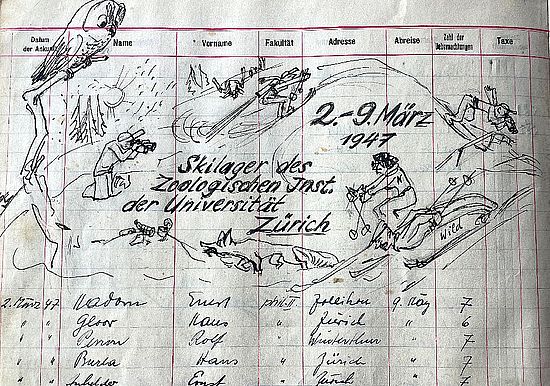 Datum der Ankunft Name Vorname Fakultät Adresse Abreise Zahl der Uebernachtungen Taxe
2.-9. März
1947
Skilager des
Zoologischen Inst.
der Universität
Zürich
Wild
2. März 47 Hadorn Ernst phil. II Zollikon 9. März 7
" " Gloor Hans " Zürich " 6
" " Perron Rolf " Winterthur " 7
" " Burla Hans " Zürich " 7
" " Ernst " Zürich " 7